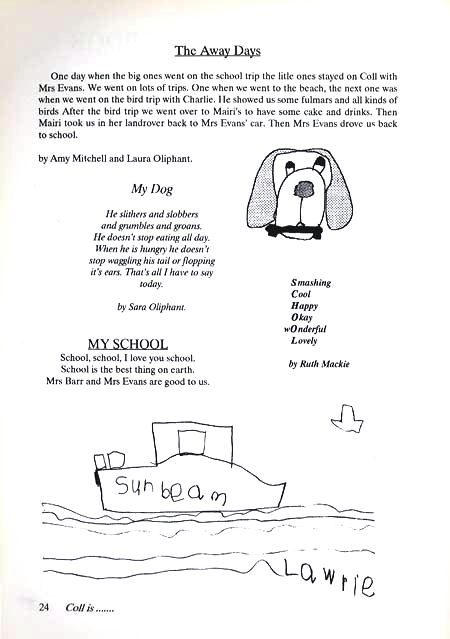 The Away Days
One day when the big ones went on the school trip the litle ones stayed on Coll with
Mrs Evans. We went on lots of trips. One when we went to the beach, the next one was
when we went on the bird trip with Charlie. He showed us some fulmars and all kinds of
birds After the bird trip we went over to Mairi's to have some cake and drinks. Then
Mairi took us in her landrover back to Mrs Evans' car. Then Mrs Evans drove us back
to school.
by Amy Mitchell and Laura Oliphant.
My Dog
He slithers and slobbers
and grumbles and groans.
He doesn't stop eating all day.
When he is hungry he doesn't
stop waggling his tail or flopping
it's ears. That's all I have to say
today.
by Sara Oliphant.
Smashing
Cool
Happy
Okay
wOnderful
Lovely
by Ruth Mackie
MY SCHOOL
School, school, I love you school.
School is the best thing on earth.
Mrs Barr and Mrs Evans are good to us.
Sunbeam
Lawrie
24 Coll is .......